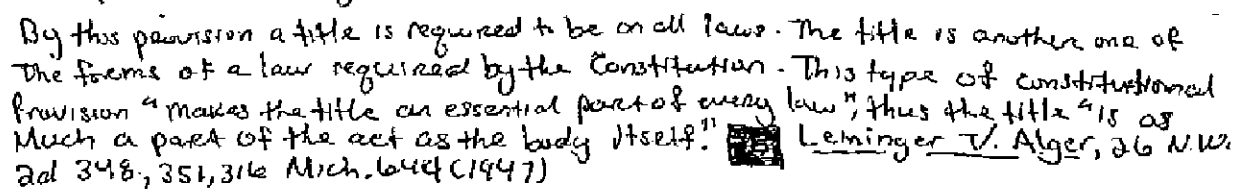 By this provision a title is required to be on all laws. The title is another one of
the forms of a law required by the Constitution. This type of constitutional
Provision "makes the title an essential part of every law", thus the title "is as
Much a part of the act as the body itself." Leminger V. Alger, 26 N.W.
2d 348, 351, 316 Mich. 644 (1947)